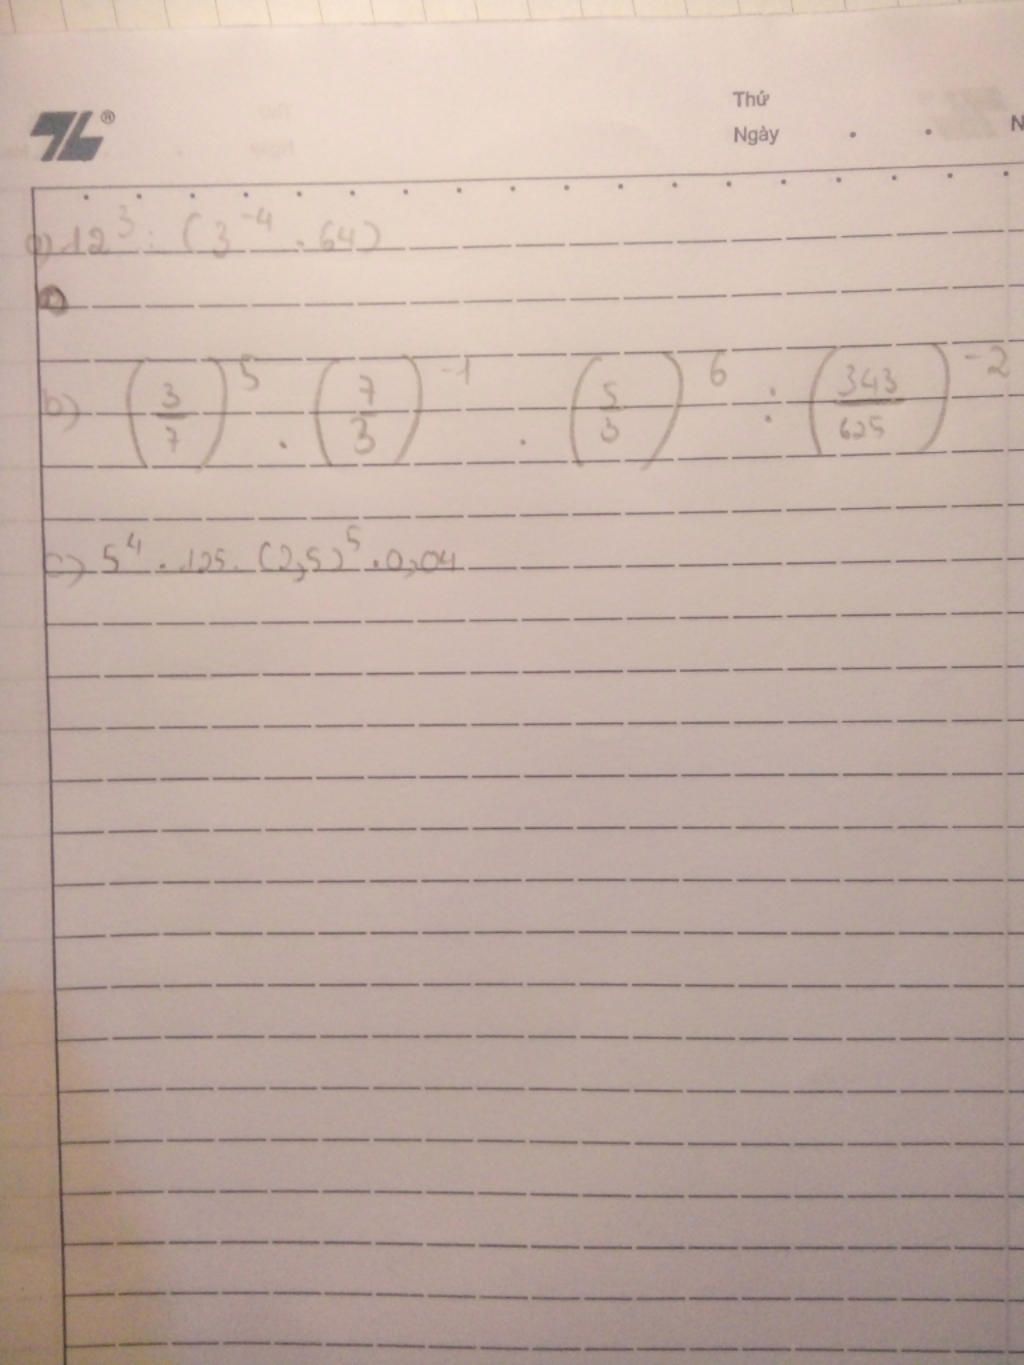 TL®
Thứ
Ngày . . N
a) 12³ : (3⁻⁴ . 64)
b) (3/7)⁵ . (7/3)⁻¹ . (5/3)⁶ : (343/625)⁻²
c) 5⁴ . 125 . (2,5)⁵ . 0,04